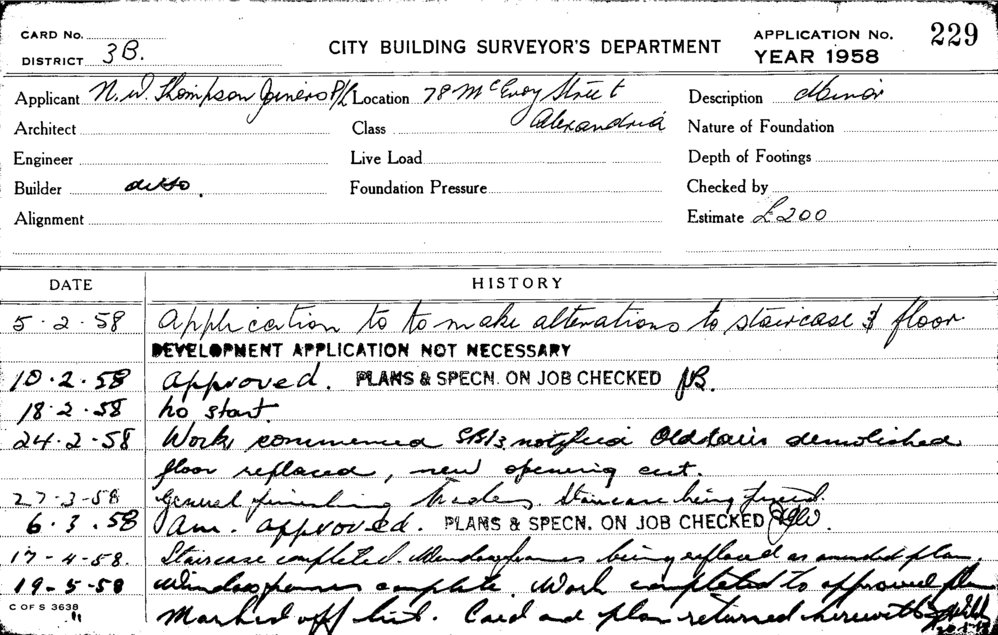 CARD No.
DISTRICT 3B.
CITY BUILDING SURVEYOR'S DEPARTMENT
APPLICATION No. 229
YEAR 1958
Applicant N. W. Thompson Joiners P/L Location 78 McEvoy Street Description Minor
Architect Class Alexandria Nature of Foundation
Engineer Live Load Depth of Footings
Builder ditto. Foundation Pressure Checked by
Alignment Estimate £200
DATE HISTORY
5.2.58 Application to to make alterations to staircase & floor.
DEVELOPMENT APPLICATION NOT NECESSARY
10.2.58 Approved. PLANS & SPECN. ON JOB CHECKED
18.2.58 No start
24-2-58 Work commenced notified Old stairs demolished
floor replaced, new opening cut.
27-3-58 General finishing trades. Staircase being fixed.
6.3.58 Am. approved. PLANS & SPECN. ON JOB CHECKED
17-4-58. Staircase completed. Window frames being replaced as amended plan.
19-5-58 Window frames complete. Work completed to approved plan
Marked off list. Card and plan returned herewith
C OF S 3638